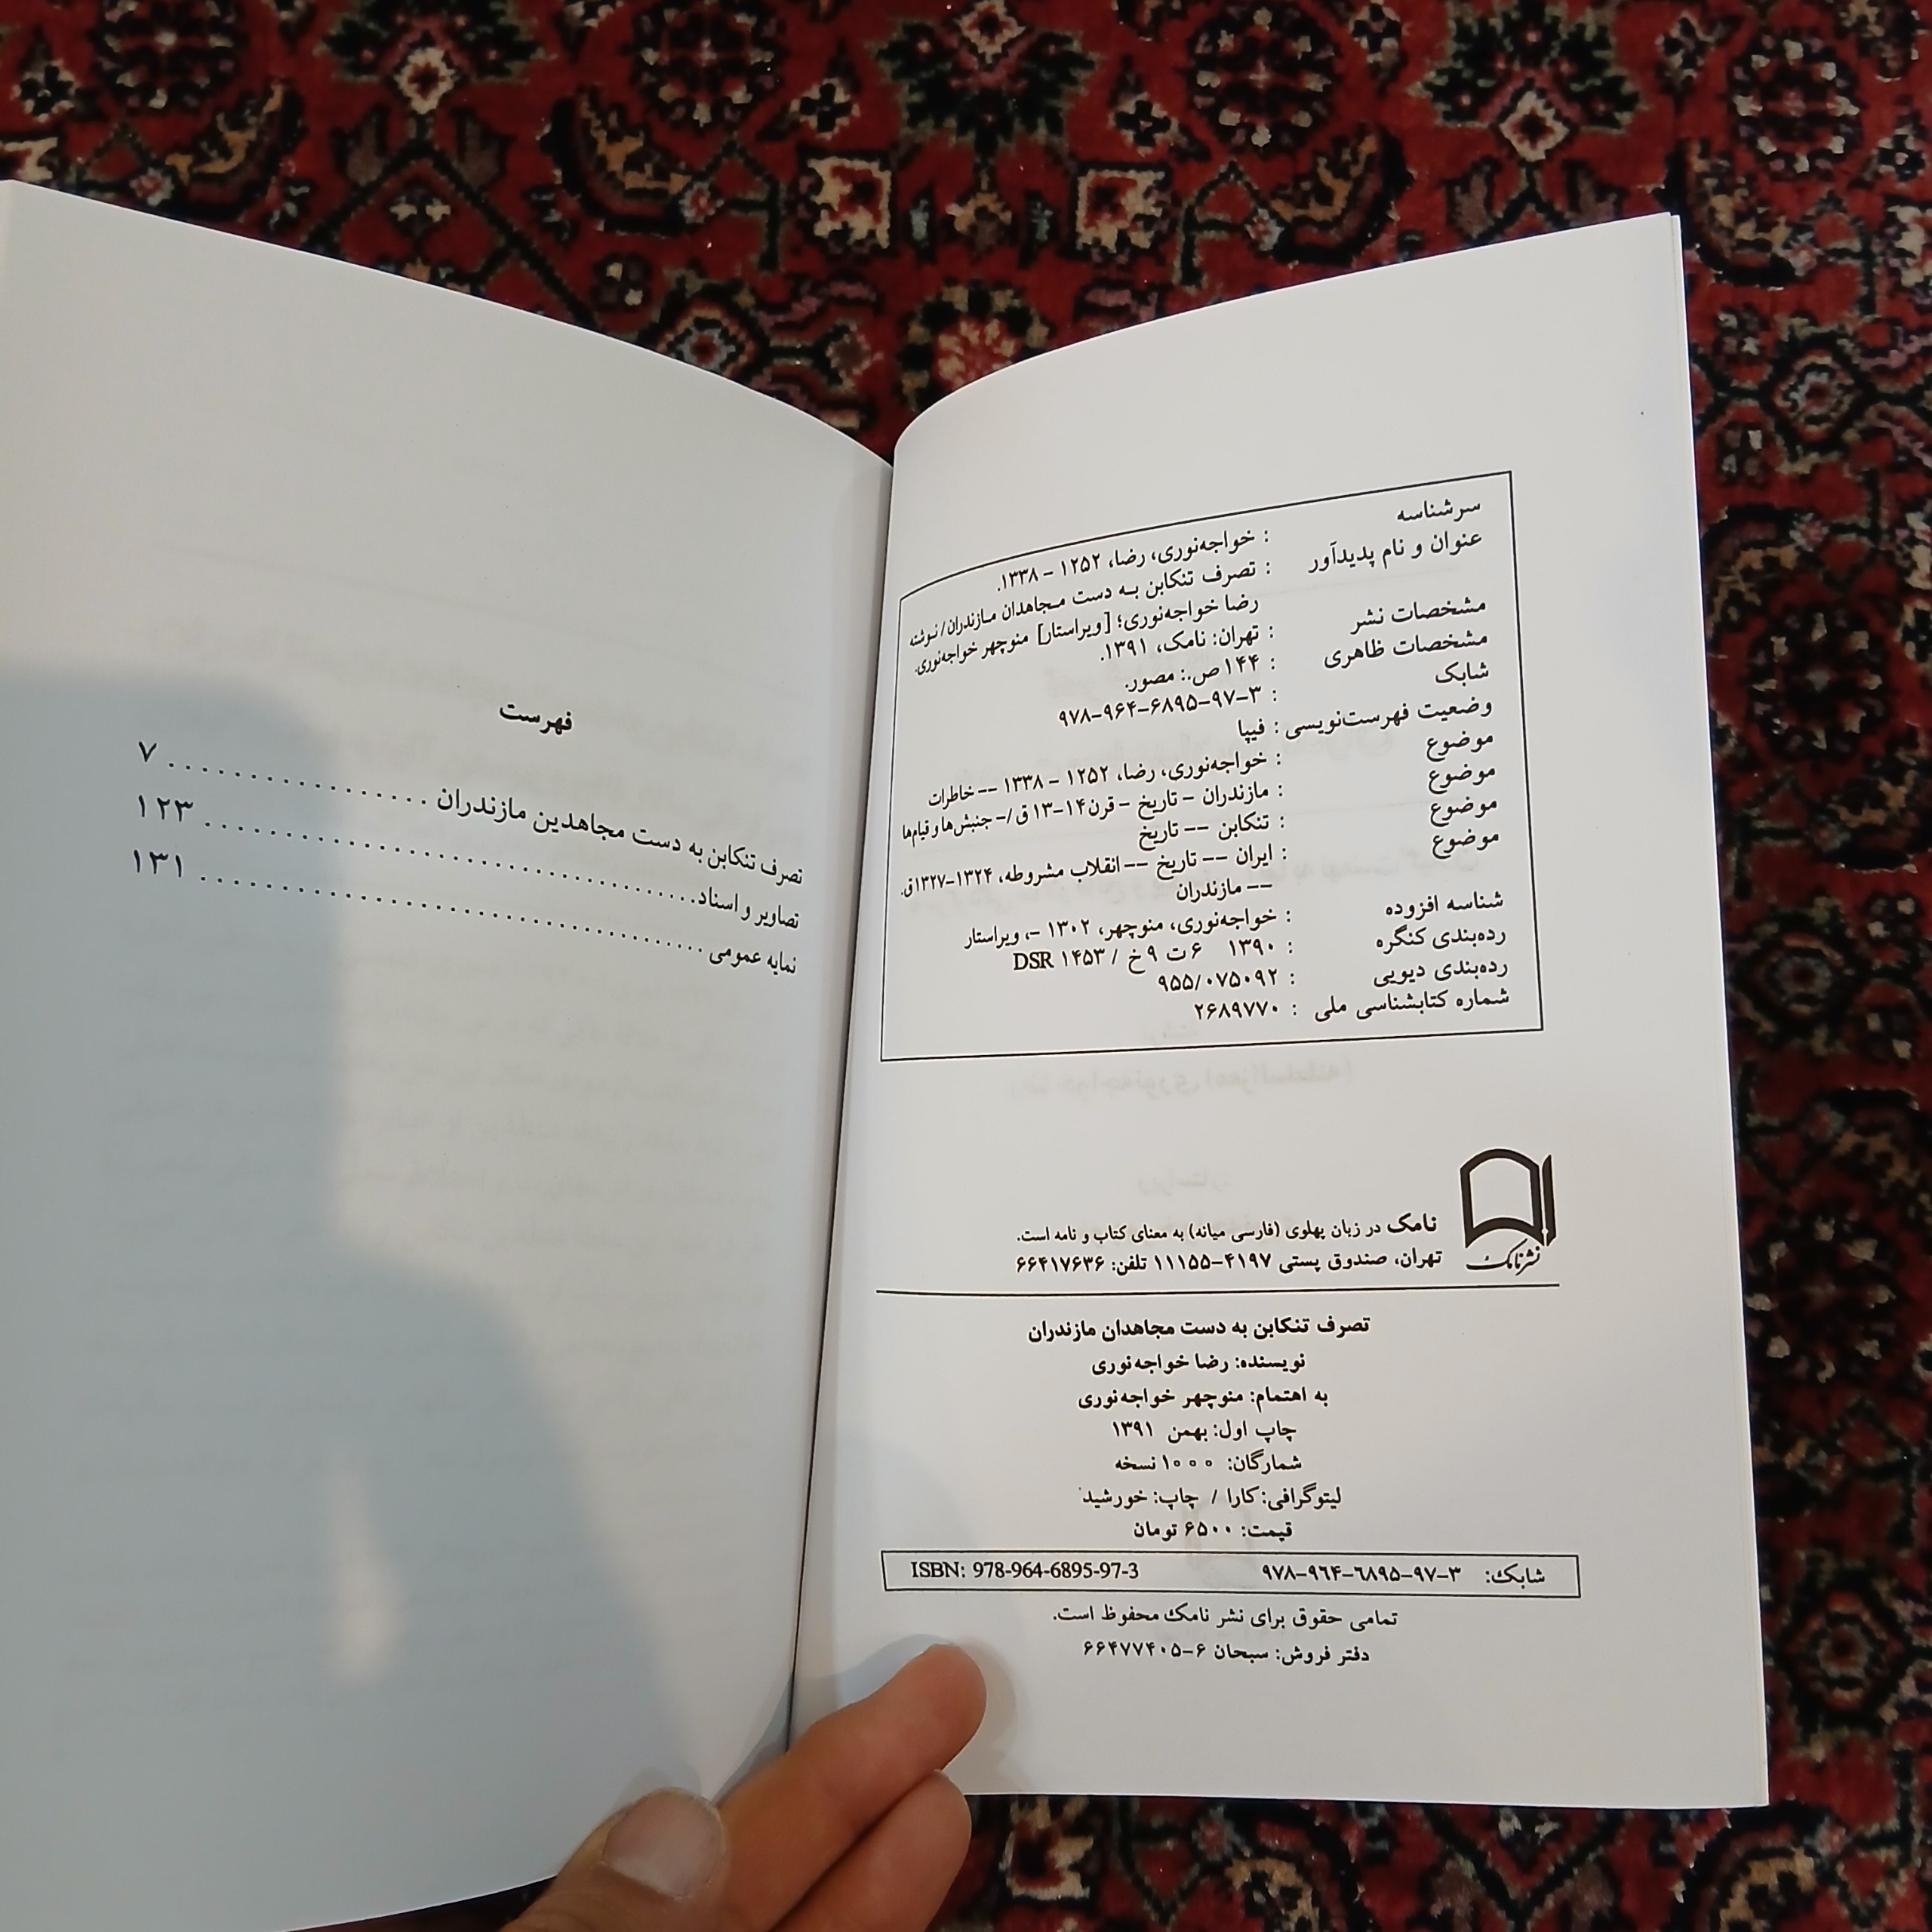 سرشناسه : خواجه‌نوری، رضا، ۱۲۵۲ – ۱۳۳۸.
عنوان و نام پدیدآور : تصرف تنکابن به دست مجاهدان مازندران/ نوشته
رضا خواجه‌نوری؛ [ویراستار] منوچهر خواجه‌نوری.
مشخصات نشر : تهران: نامک، ۱۳۹۱.
مشخصات ظاهری : ۱۴۴ ص.: مصور.
شابک : ۹۷۸-۹۶۴-۶۸۹۵-۹۷-۳
وضعیت فهرست‌نویسی : فیپا
موضوع : خواجه‌نوری، رضا، ۱۲۵۲ – ۱۳۳۸ -- خاطرات
موضوع : مازندران – تاریخ – قرن۱۴-۱۳ ق /– جنبش‌ها و قیام‌ها
موضوع : تنکابن -- تاریخ
موضوع : ایران -- تاریخ -- انقلاب مشروطه، ۱۳۲۴-۱۳۲۷ق.
-- مازندران
شناسه افزوده : خواجه‌نوری، منوچهر، ۱۳۰۲ -، ویراستار
رده‌بندی کنگره : ۱۳۹۰ ۶ت ۹خ / DSR ۱۴۵۳
رده‌بندی دیویی : ۹۵۵/۰۷۵۰۹۲
شماره کتابشناسی ملی : ۲۶۸۹۷۷۰
نشر نامک
نامک در زبان پهلوی (فارسی میانه) به معنای کتاب و نامه است.
تهران، صندوق پستی ۴۱۹۷-۱۱۱۵۵ تلفن: ۶۶۴۱۷۶۳۶
تصرف تنکابن به دست مجاهدان مازندران
نویسنده: رضا خواجه‌نوری
به اهتمام: منوچهر خواجه‌نوری
چاپ اول: بهمن ۱۳۹۱
شمارگان: ۱۰۰۰ نسخه
لیتوگرافی: کارا / چاپ: خورشید
قیمت: ۶۵۰۰ تومان
شابک: ۹۷۸-۹۶۴-۶۸۹۵-۹۷-۳ ISBN: 978-964-6895-97-3
تمامی حقوق برای نشر نامک محفوظ است.
دفتر فروش: سبحان ۶-۶۶۴۷۷۴۰۵
فهرست
تصرف تنکابن به دست مجاهدین مازندران . . . . . . . . . . . . . . . . . ۷
تصاویر و اسناد . . . . . . . . . . . . . . . . . . . . . . . . . . . . . . . ۱۲۳
نمایه عمومی . . . . . . . . . . . . . . . . . . . . . . . . . . . . . . . . ۱۳۱